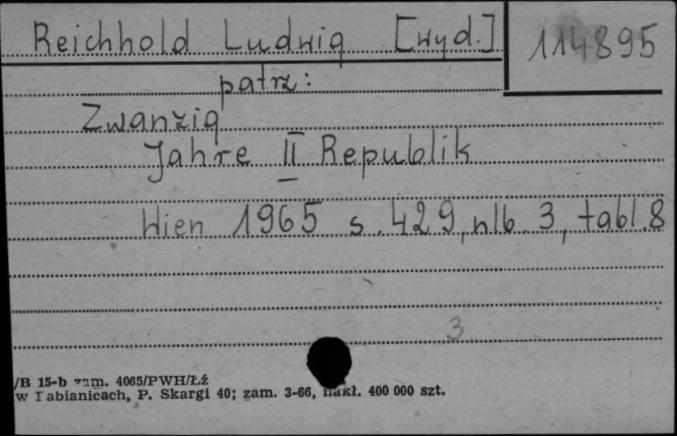 Reichhold Ludwig [wyd.] 114895
patrz:
Zwanzig
Jahre II Republik
Wien 1965 s. 429, nlb. 3, tabl. 8
3
/B 15-b zam. 4065/PWH/Łź
w Pabianicach, P. Skargi 40; zam. 3-66, nakł. 400 000 szt.